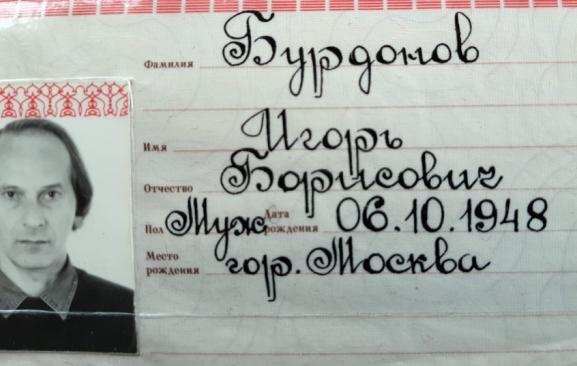 Фамилия Бурдонов
Имя Игорь
Отчество Борисович
Пол Муж Дата рождения 06.10.1948
Место рождения гор. Москва